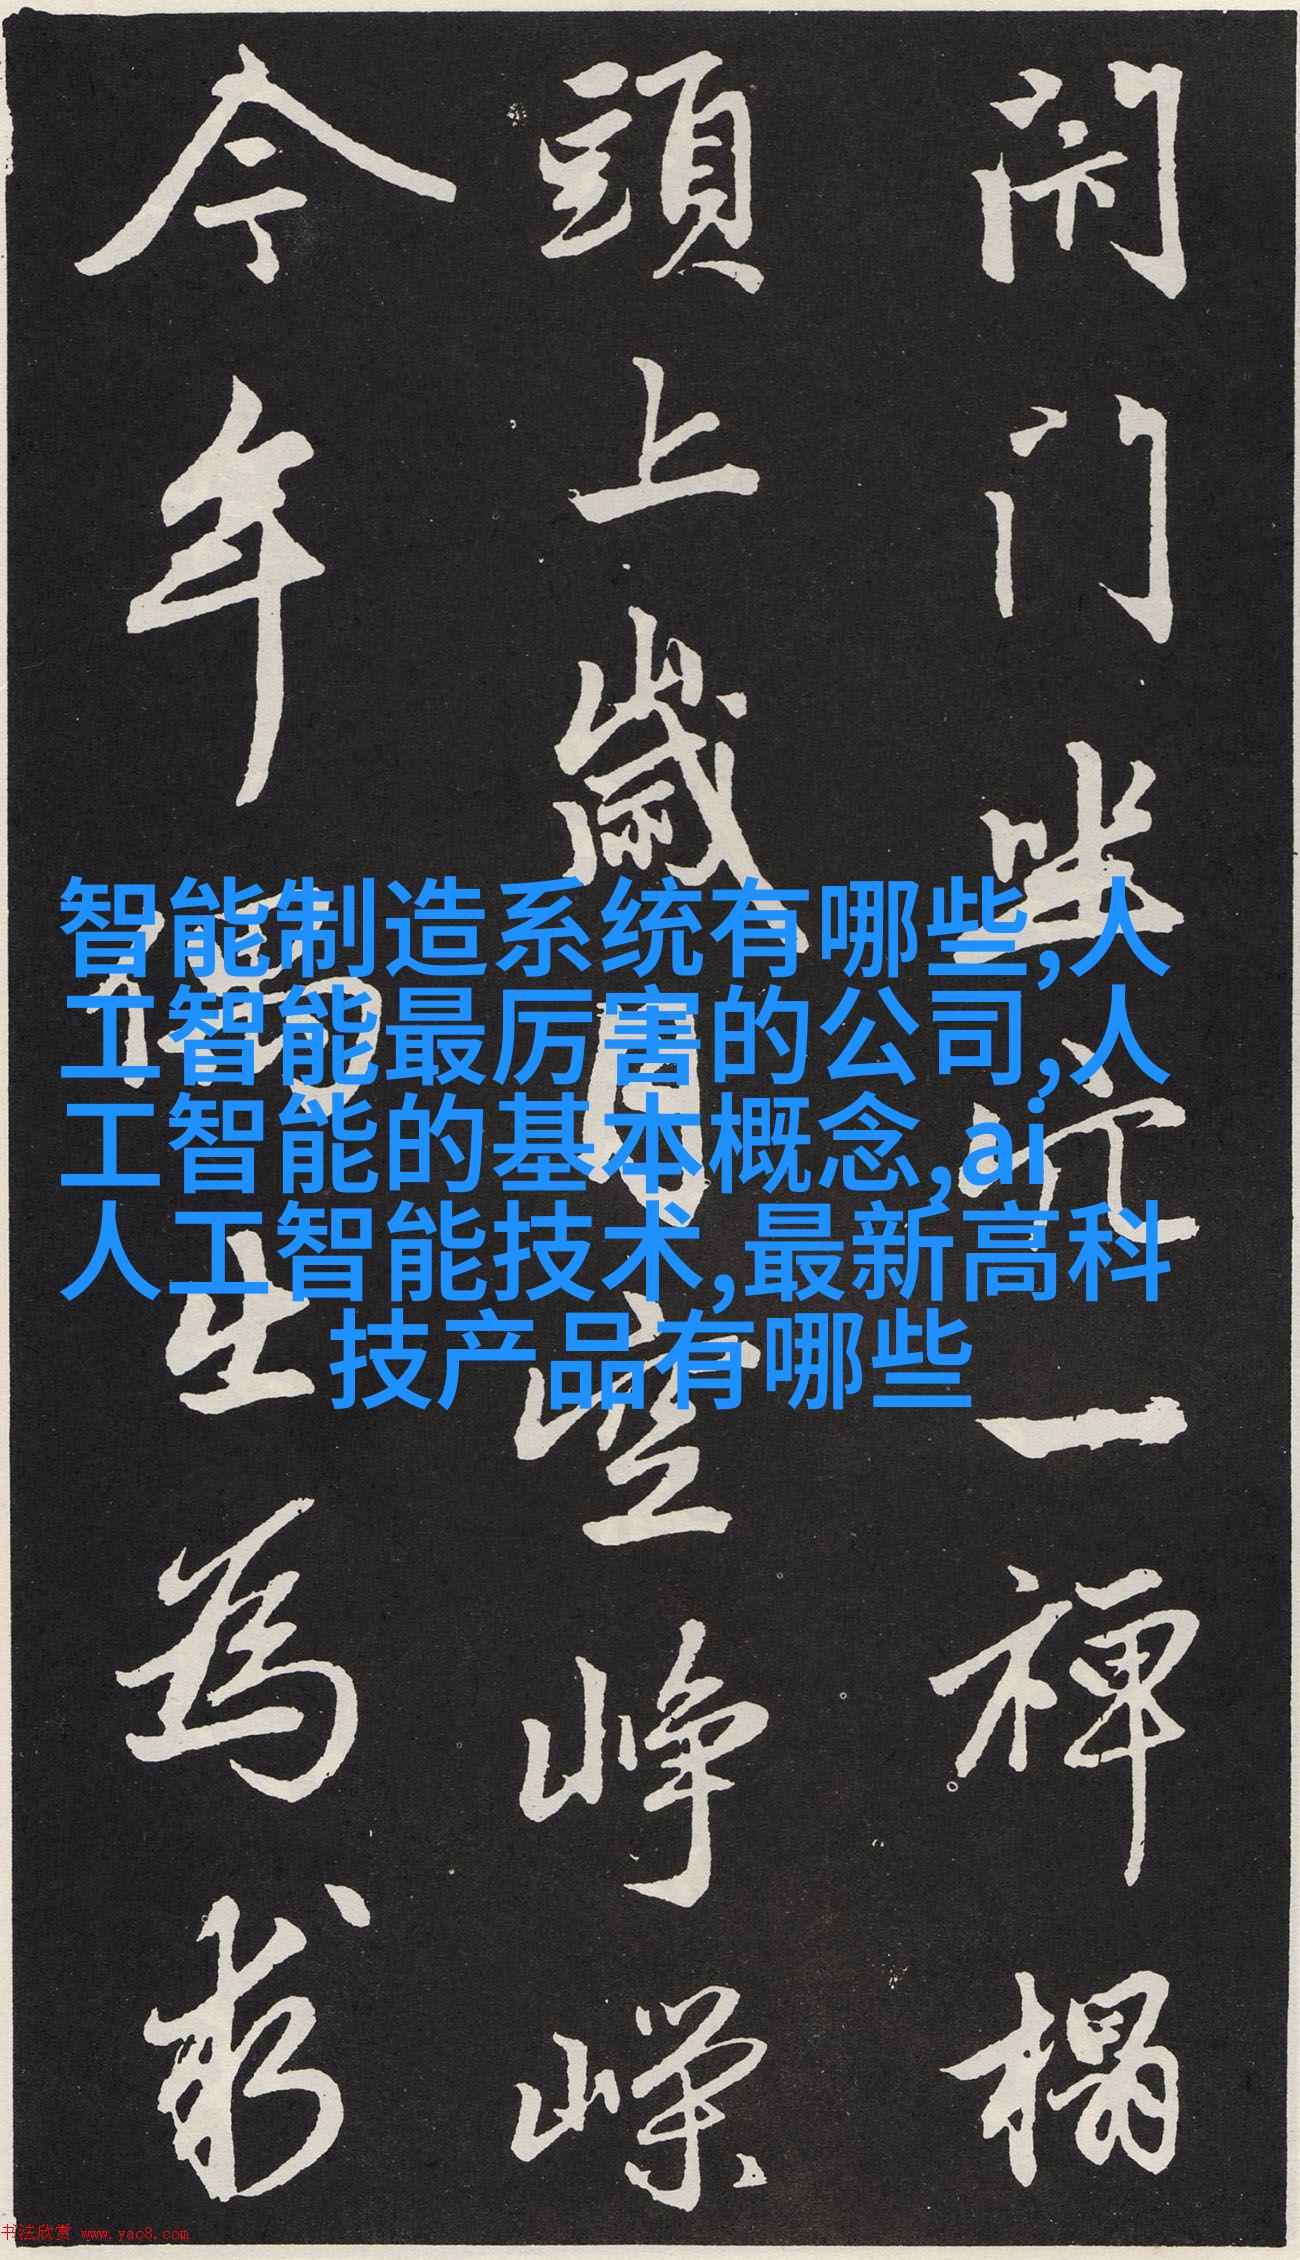 閉門坐穴一禪榻
頭上歲月空崢嶸
今年偶出為求
智能制造系统有哪些,人
工智能最厉害的公司,人
工智能的基本概念,ai
人工智能技术,最新高科
技产品有哪些
书法欣赏 www.yac8.com